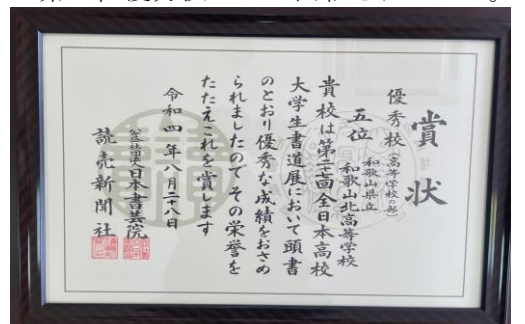 賞状
優秀校(高等学校の部)
五位 和歌山県立
和歌山北高等学校
貴校は第二十七回全日本高校
大学生書道展において頭書
のとおり優秀な成績をおさめ
られましたのでその栄誉を
たたえこれを賞します
令和四年八月二十八日
公益社団法人日本書芸院
読売新聞社